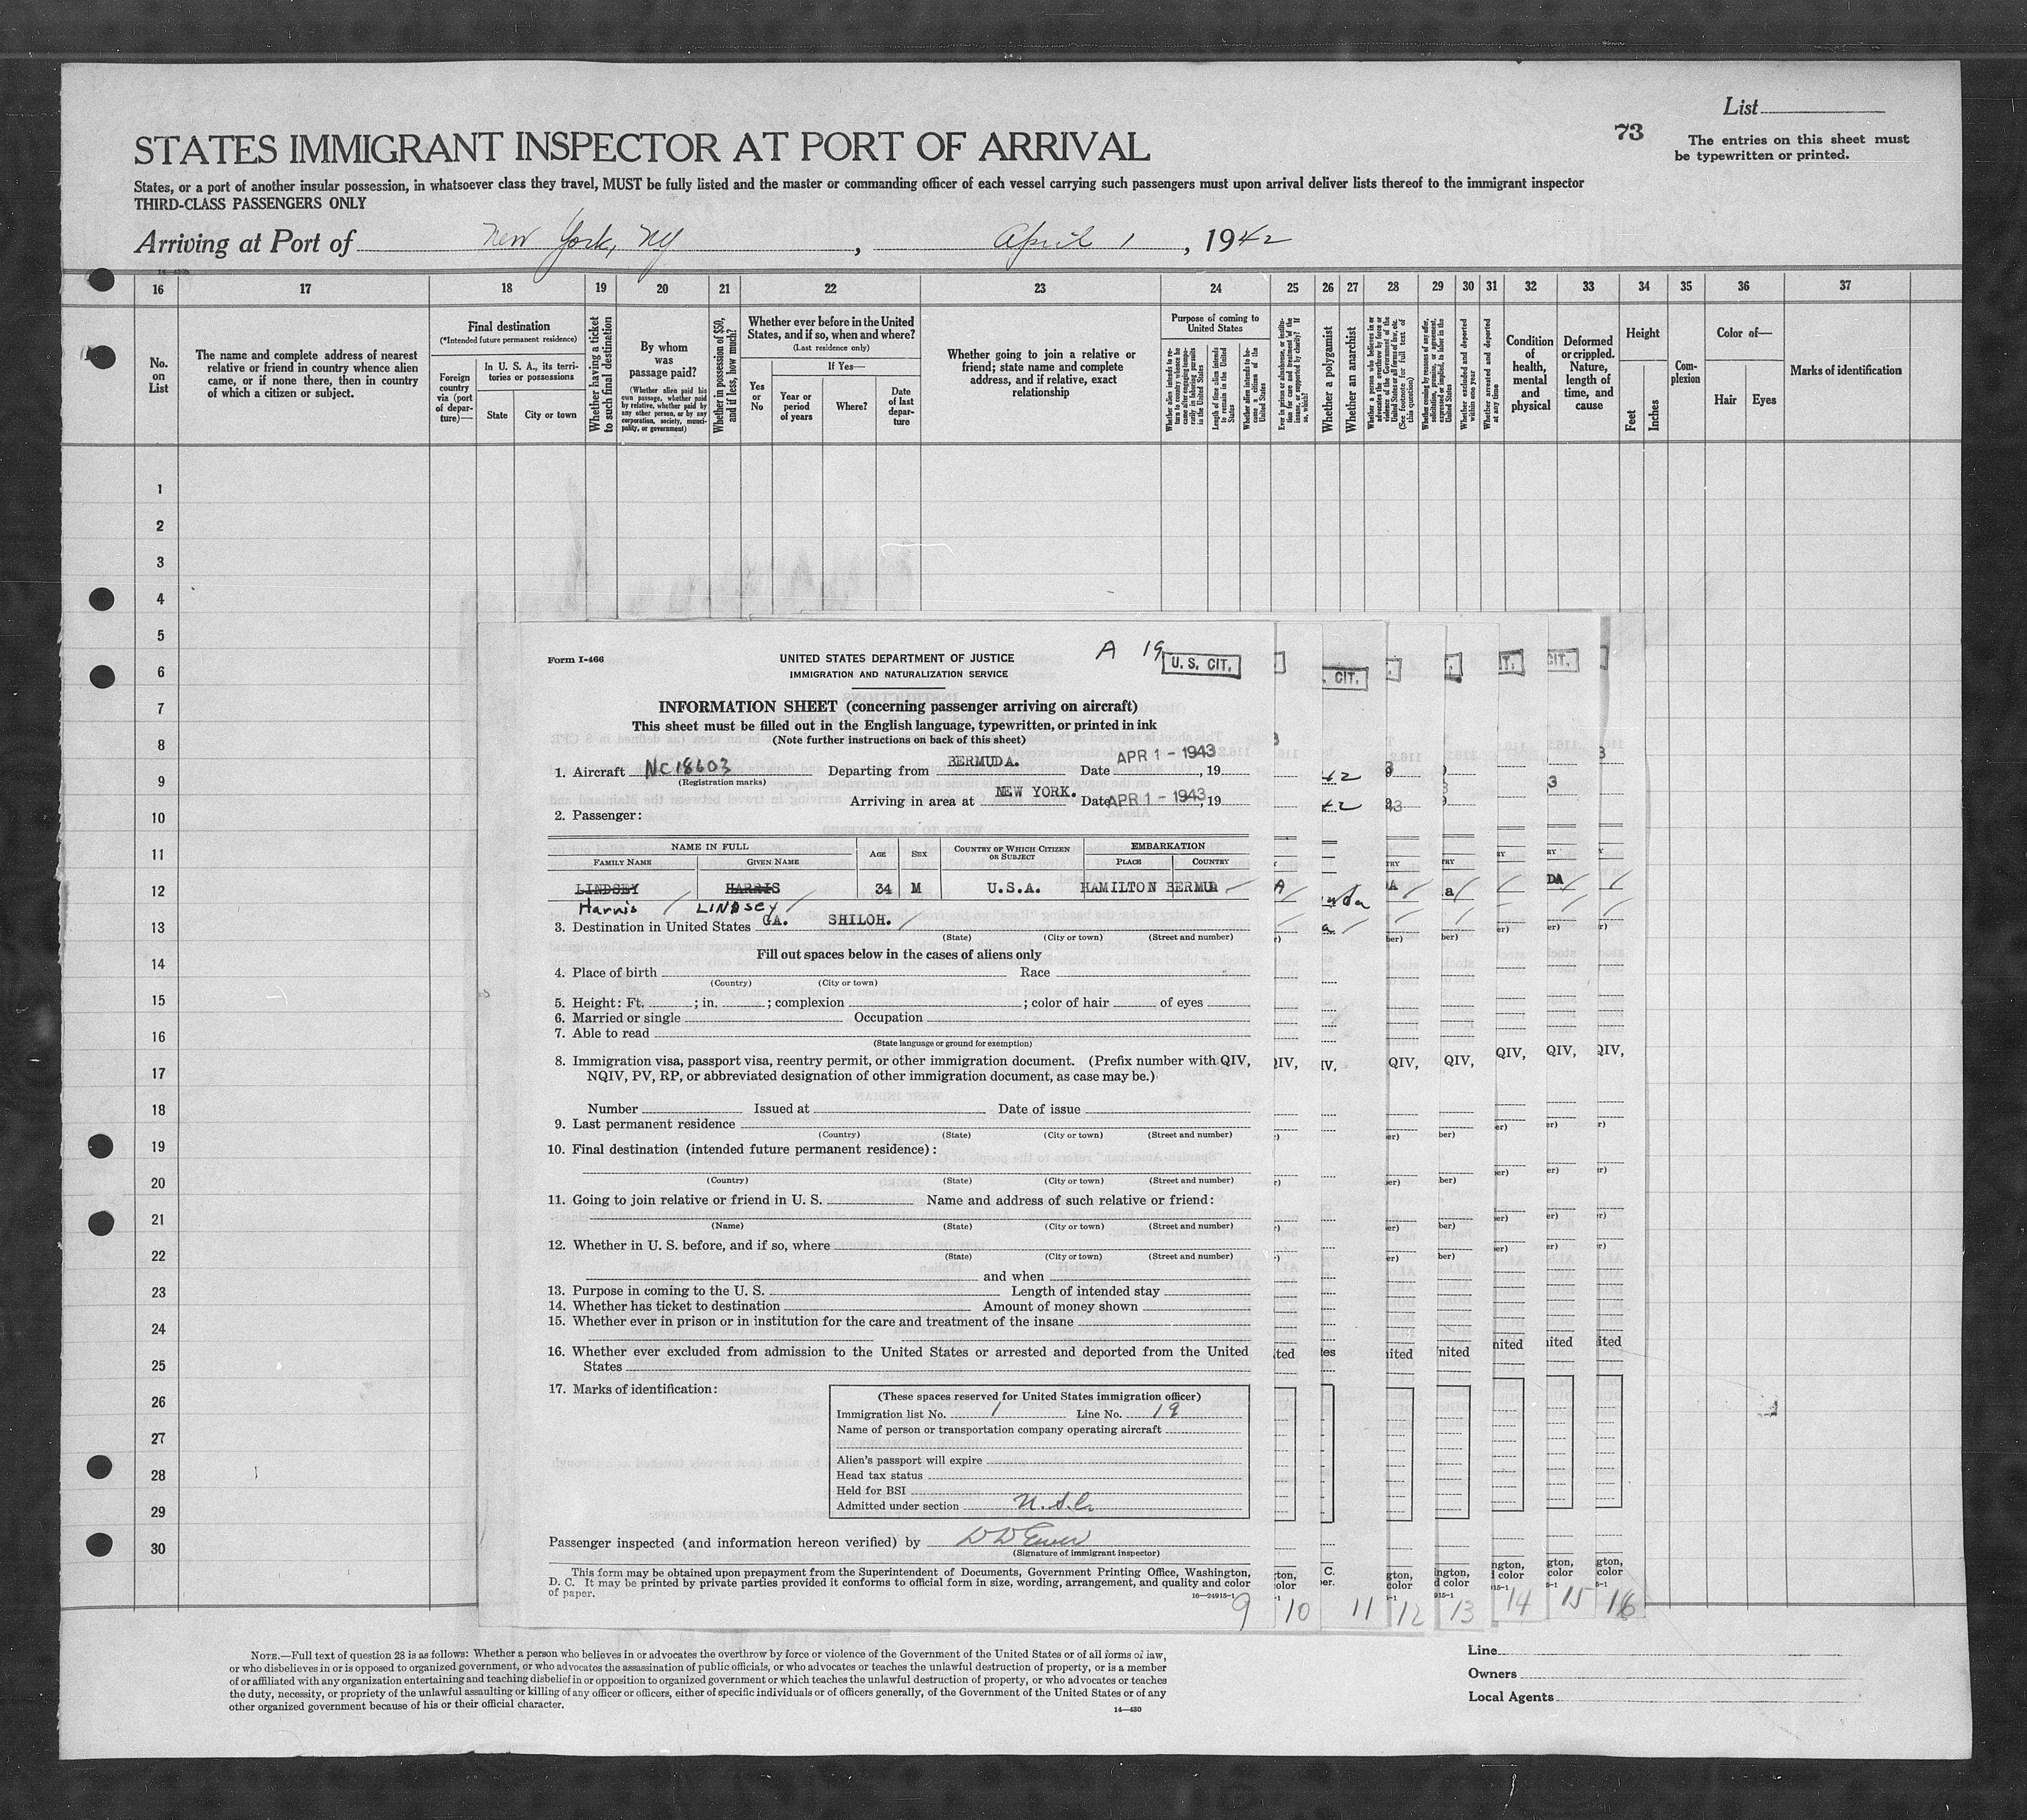 List
73
The entries on this sheet must
be typewritten or printed.
STATES IMMIGRANT INSPECTOR AT PORT OF ARRIVAL
States, or a port of another insular possession, in whatsoever class they travel, MUST be fully listed and the master or commanding officer of each vessel carrying such passengers must upon arrival deliver lists thereof to the immigrant inspector
THIRD-CLASS PASSENGERS ONLY
Arriving at Port of New York, NY, April 1, 1942
16 17 18 19 20 21 22 23 24 25 26 27 28 29 30 31 32 33 34 35 36 37
No. on List
The name and complete address of nearest
relative or friend in country whence alien
came, or if none there, then in country
of which a citizen or subject.
Final destination
(*Intended future permanent residence)
Foreign country via (port of departure)—
In U. S. A., its territories or possessions
State
City or town
Whether having a ticket
to such final destination
By whom
was
passage paid?
(Whether alien paid his
own passage, whether paid
by relative, whether paid by
any other person, or by any
corporation, society, munici-
pality, or government)
Whether in possession of $50,
and if less, how much?
Whether ever before in the United
States, and if so, when and where?
(Last residence only)
Yes or No
If Yes—
Year or period of years
Where?
Date of last depar-ture
Whether going to join a relative or
friend; state name and complete
address, and if relative, exact
relationship
Purpose of coming to
United States
Length of time alien intends to remain in the United States
Whether a polygamist
Whether an anarchist
Whether excluded and deported within one year
Whether arrested and deported at any time
Condition
of
health,
mental
and
physical
Deformed
or crippled.
Nature,
length of
time, and
cause
Height
Feet
Inches
Com-
plexion
Color of—
Hair
Eyes
Marks of identification
1
2
3
4
5
6
7
8
9
10
11
12
13
14
15
16
17
18
19
20
21
22
23
24
25
26
27
28
29
30
Form I-466
UNITED STATES DEPARTMENT OF JUSTICE
IMMIGRATION AND NATURALIZATION SERVICE
A 19
U. S. CIT.
INFORMATION SHEET (concerning passenger arriving on aircraft)
This sheet must be filled out in the English language, typewritten, or printed in ink
(Note further instructions on back of this sheet)
1. Aircraft NC18603 Departing from BERMUDA. Date APR 1 - 1943, 19
(Registration marks)
Arriving in area at NEW YORK. Date APR 1 - 1943, 19
2. Passenger:
NAME IN FULL
FAMILY NAME GIVEN NAME
AGE SEX
COUNTRY OF WHICH CITIZEN
OR SUBJECT
EMBARKATION
PLACE COUNTRY
LINDSEY HARRIS 34 M U.S.A. HAMILTON BERMUDA
Harris LINDSEY
3. Destination in United States GA. SHILOH.
(State) (City or town) (Street and number)
Fill out spaces below in the cases of aliens only
4. Place of birth Race
(Country) (City or town)
5. Height: Ft. ; in. ; complexion ; color of hair of eyes
6. Married or single Occupation
7. Able to read
(State language or ground for exemption)
8. Immigration visa, passport visa, reentry permit, or other immigration document. (Prefix number with QIV,
NQIV, PV, RP, or abbreviated designation of other immigration document, as case may be.)
Number Issued at Date of issue
9. Last permanent residence
(Country) (State) (City or town) (Street and number)
10. Final destination (intended future permanent residence):
(Country) (State) (City or town) (Street and number)
11. Going to join relative or friend in U. S. Name and address of such relative or friend:
(Name) (State) (City or town) (Street and number)
12. Whether in U. S. before, and if so, where
(State) (City or town) (Street and number)
and when
13. Purpose in coming to the U. S. Length of intended stay
14. Whether has ticket to destination Amount of money shown
15. Whether ever in prison or in institution for the care and treatment of the insane
16. Whether ever excluded from admission to the United States or arrested and deported from the United
States
17. Marks of identification:
(These spaces reserved for United States immigration officer)
Immigration list No. 1 Line No. 19
Name of person or transportation company operating aircraft
Alien's passport will expire
Head tax status
Held for BSI
Admitted under section U.S.C.
Passenger inspected (and information hereon verified) by
(Signature of immigrant inspector)
This form may be obtained upon prepayment from the Superintendent of Documents, Government Printing Office, Washington,
D. C. It may be printed by private parties provided it conforms to official form in size, wording, arrangement, and quality and color
of paper.
16—24915-1
9 10 11 12 13 14 15 16
NOTE.—Full text of question 28 is as follows: Whether a person who believes in or advocates the overthrow by force or violence of the Government of the United States or of all forms of law,
or who disbelieves in or is opposed to organized government, or who advocates the assassination of public officials, or who advocates or teaches the unlawful destruction of property, or is a member
of or affiliated with any organization entertaining and teaching disbelief in or opposition to organized government or which teaches the unlawful destruction of property, or who advocates or teaches
the duty, necessity, or propriety of the unlawful assaulting or killing of any officer or officers, either of specific individuals or of officers generally, of the Government of the United States or of any
other organized government because of his or their official character.
14—430
Line
Owners
Local Agents